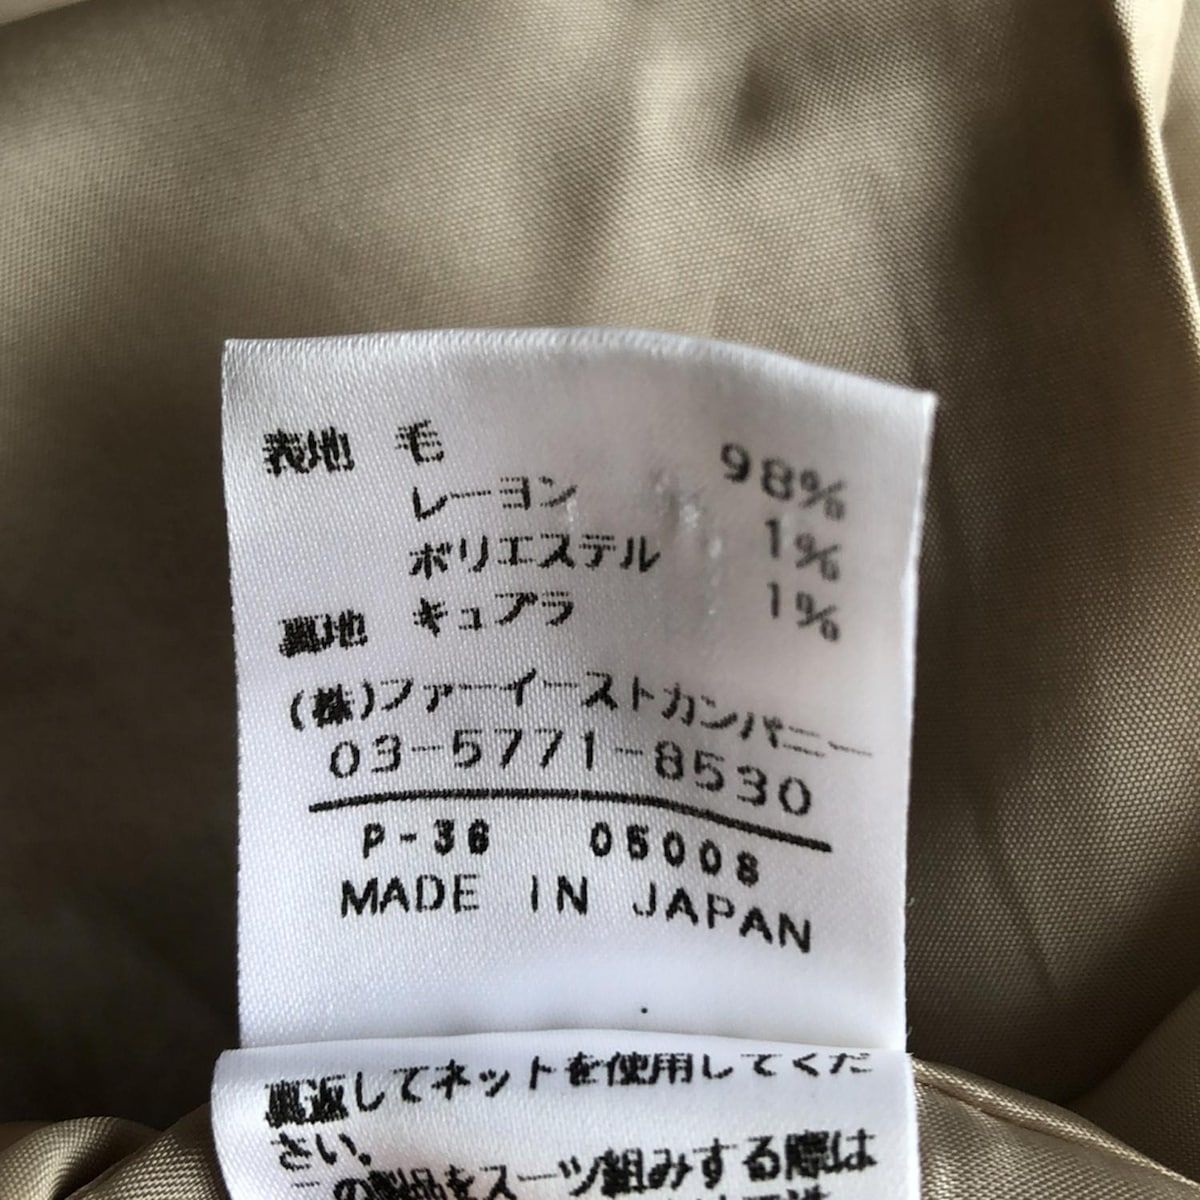 表地 毛 98%
レーヨン 1%
ポリエステル 1%
裏地 キュプラ
(株)ファーイーストカンパニー
03-5771-8530
P-36 05008
MADE IN JAPAN
裏返してネットを使用してくだ
さい。
の製品をスーツ組みする際は